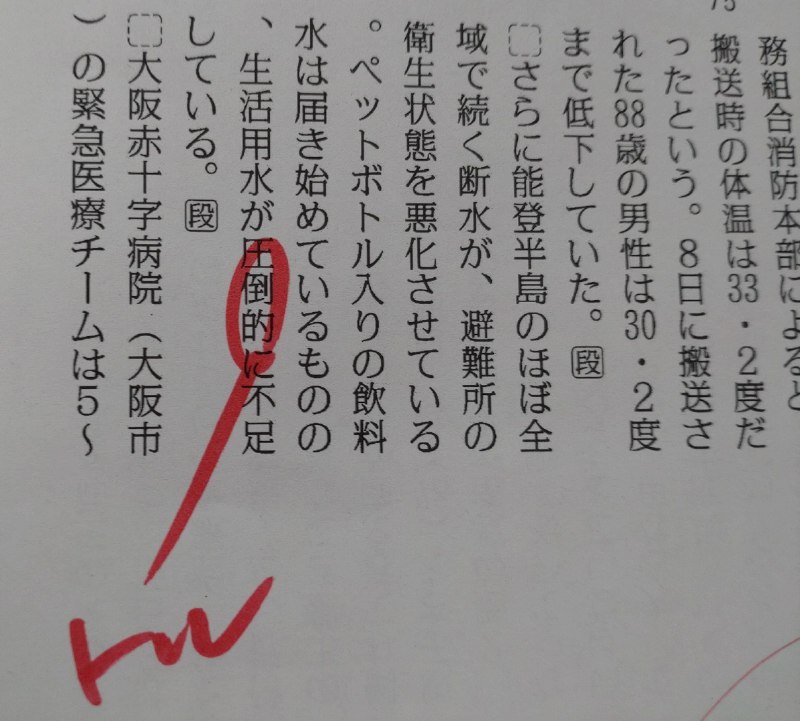 務組合消防本部によると
搬送時の体温は33・2度だ
ったという。8日に搬送さ
れた88歳の男性は30・2度
まで低下していた。段
さらに能登半島のほぼ全
域で続く断水が、避難所の
衛生状態を悪化させている
。ペットボトル入りの飲料
水は届き始めているものの
、生活用水が圧倒的に不足
している。段
大阪赤十字病院（大阪市
）の緊急医療チームは5〜
トル